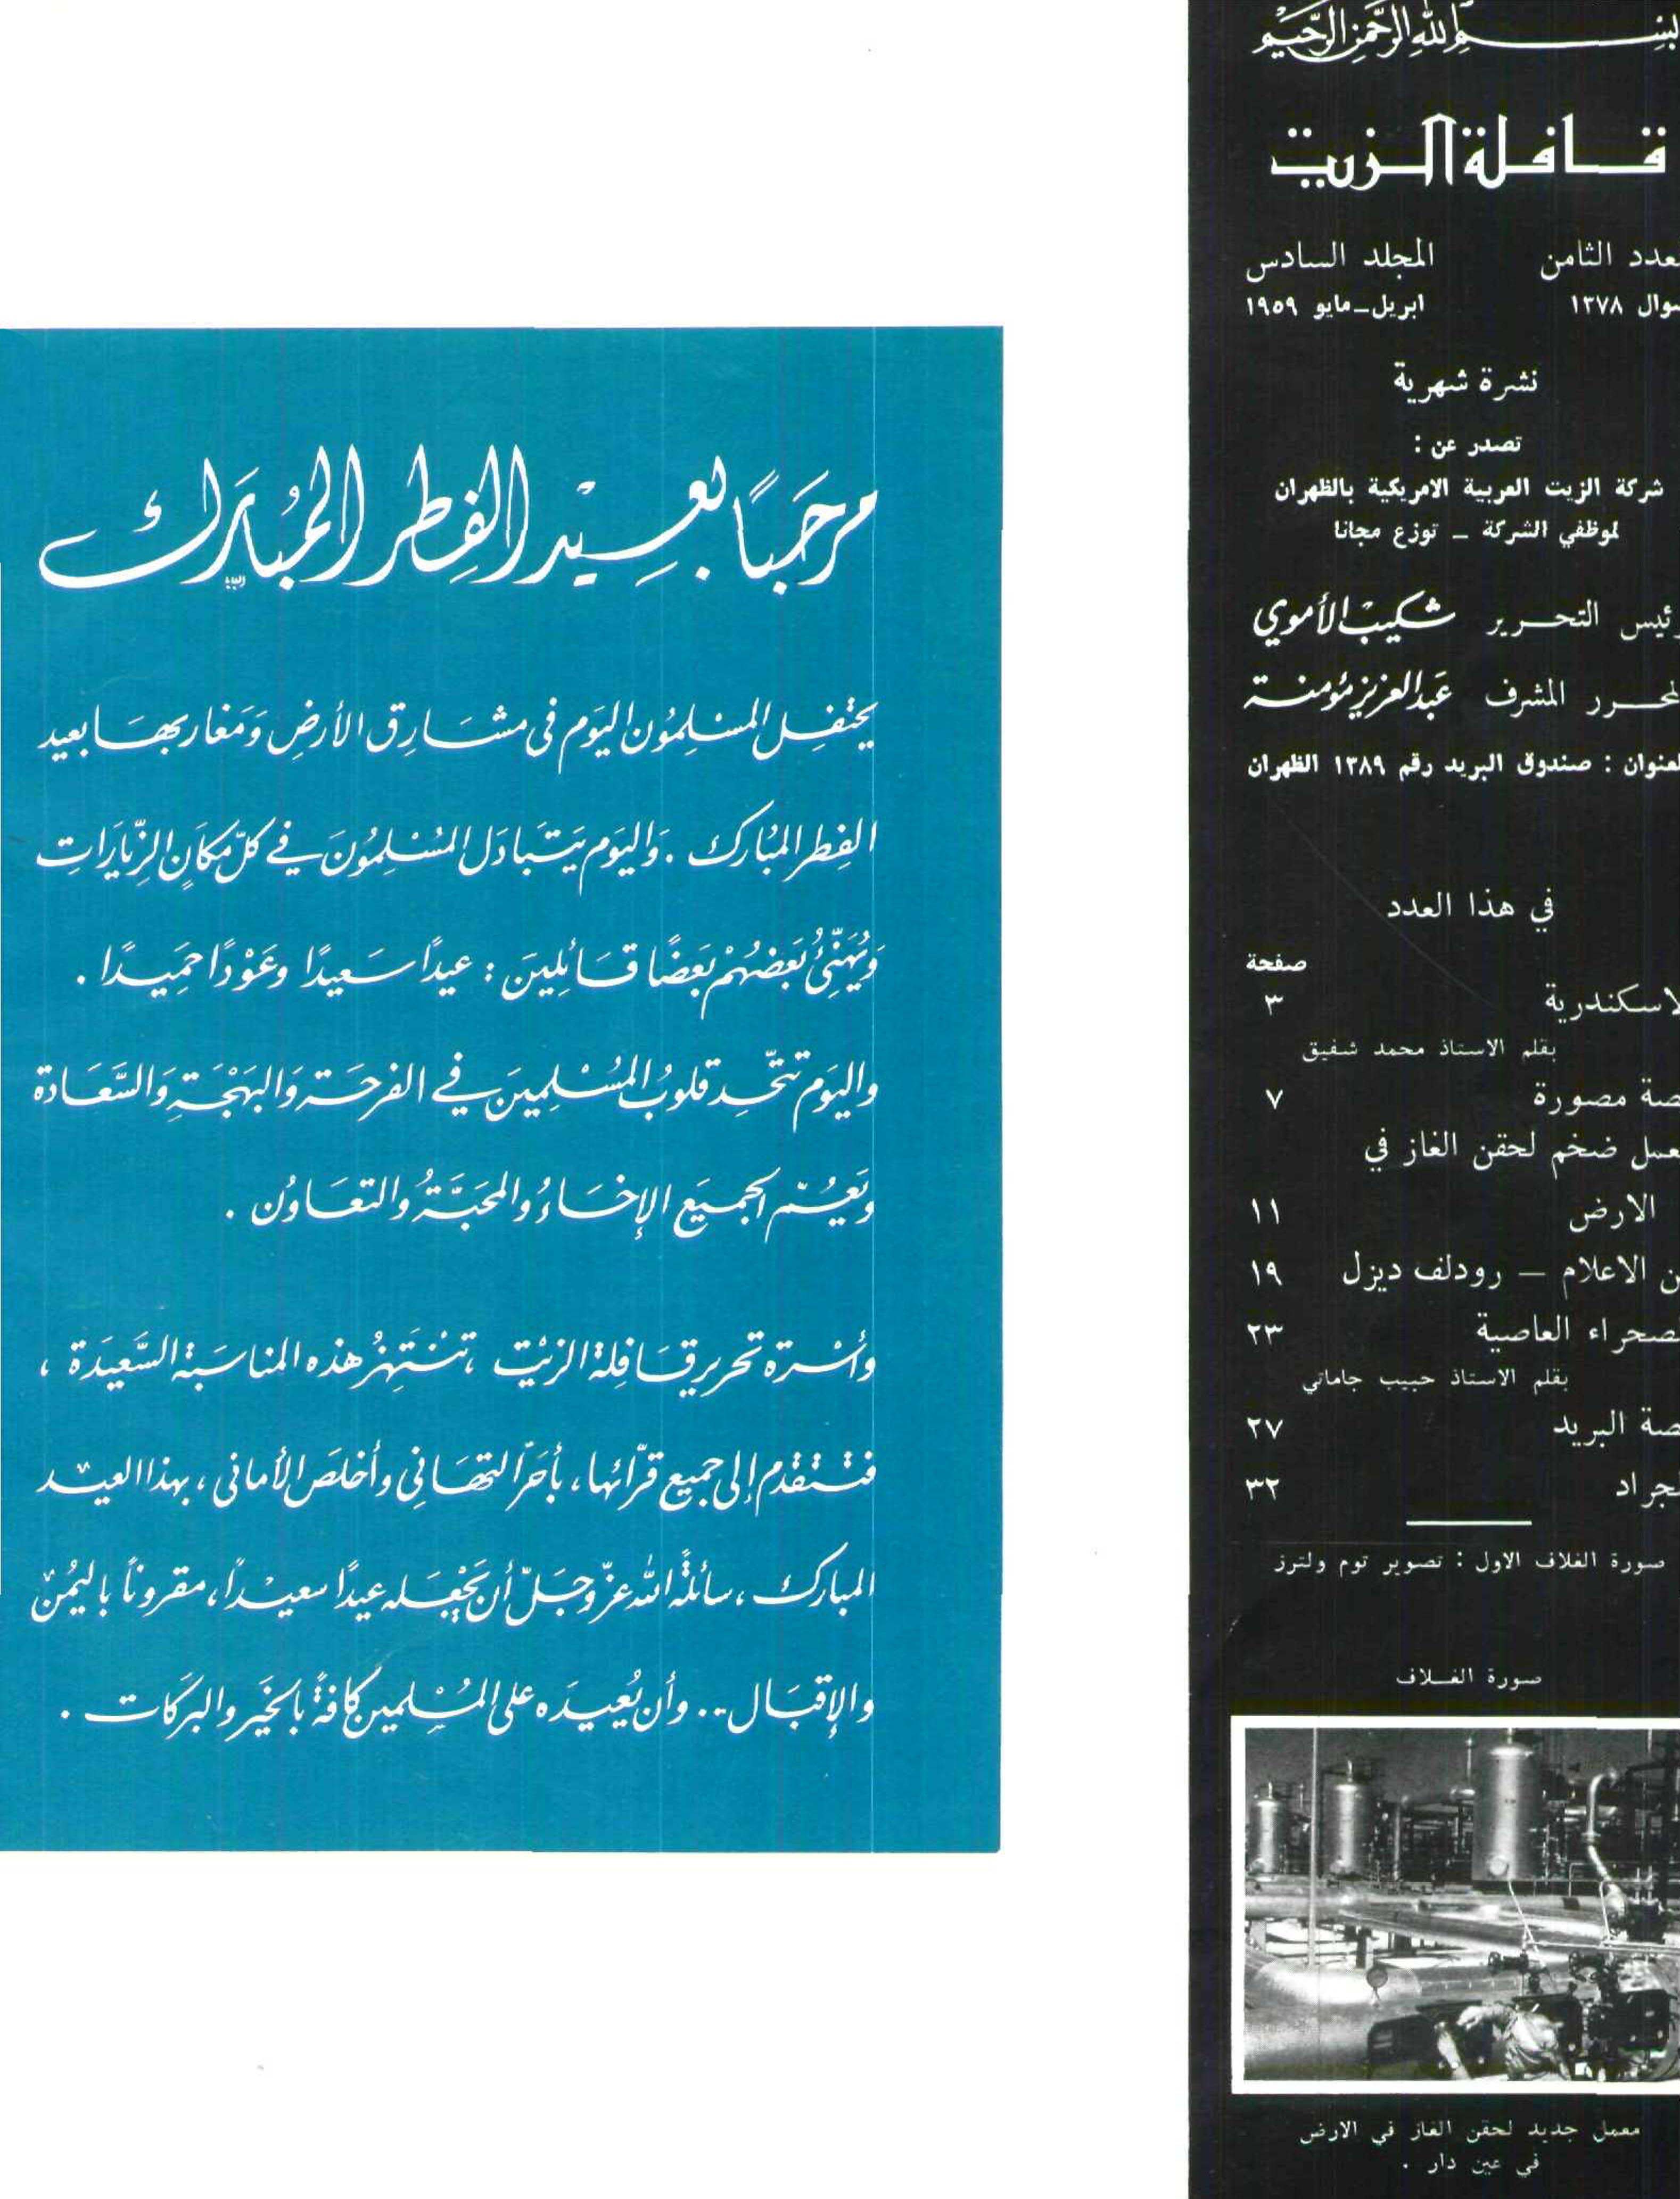 بسم الله الرحمن الرحيم
قافلة الزيت
العدد الثامن المجلد السادس
شوال ١٣٧٨ ابريل-مايو ١٩٥٩
نشرة شهرية
تصدر عن :
شركة الزيت العربية الامريكية بالظهران
لموظفي الشركة - توزع مجانا
رئيس التحرير شكيب الأموي
المحرر المشرف عبد العزيز مؤمنة
العنوان : صندوق البريد رقم ١٣٨٩ الظهران
في هذا العدد
صفحة
الاسكندرية ٣
بقلم الاستاذ محمد شفيق
قصة مصورة ٧
معمل ضخم لحقن الغاز في
الارض ١١
من الاعلام — رودلف ديزل ١٩
الصحراء العاصية ٢٣
بقلم الاستاذ حبيب جاماتي
قصة البريد ٢٧
الجراد ٣٢
صورة الغلاف الاول : تصوير توم ولترز
صورة الغلاف
معمل جديد لحقن الغاز في الارض
في عين دار .
مرحبًا بعيد الفطر المبارك
يحتفل المسلمون اليوم في مشارق الأرض ومغاربها بعيد
الفطر المبارك . واليوم يتبادل المسلمون في كل مكان الزيارات
ويهنئ بعضهم بعضًا قائلين : عيدًا سعيدًا وعودًا حميدًا .
واليوم تتحد قلوب المسلمين في الفرحة والبهجة والسعادة
ويعم الجميع الإخاء والمحبة والتعاون .
وأسرة تحرير قافلة الزيت ، تنتهز هذه المناسبة السعيدة ،
فتتقدم إلى جميع قرّائها ، بأحر التهاني وأخلص الأماني ، بهذا العيد
المبارك ، سائلة الله عز وجل أن يجعله عيدًا سعيدًا ، مقرونًا باليمن
والإقبال .. وأن يعيده على المسلمين كافة بالخير والبركات .